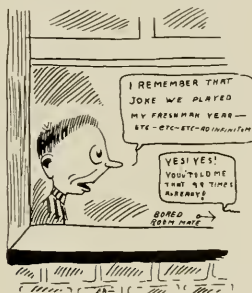 I REMEMBER THAT
JOKE WE PLAYED
MY FRESHMAN YEAR—
ETC-ETC-ETC-AD INFINITOM
YES! YES!
YOU'V TOLD ME
THAT 99 TIMES
ALREADY!
BORED
ROOM MATE